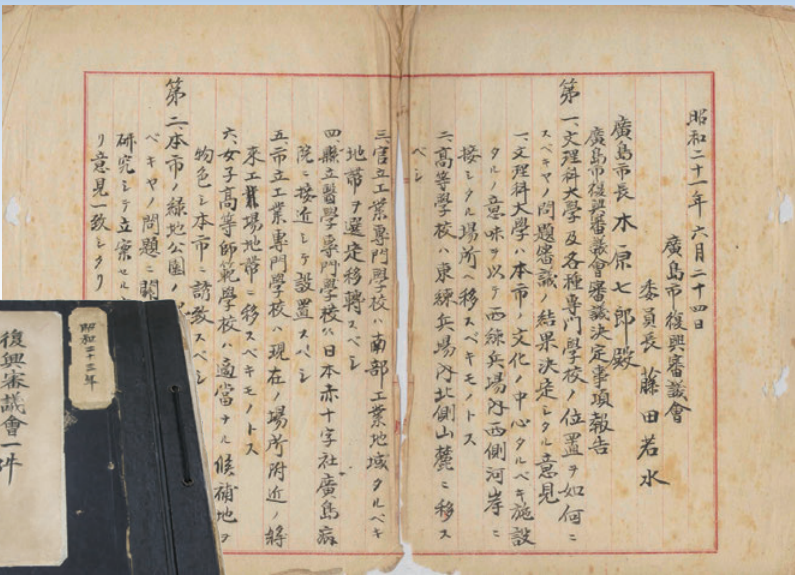 昭和二十一年六月二十四日
廣島市復興審議會
委員長 藤田若水
廣島市長木原七郎殿
廣島市復興審議會審議決定事項報告
第一、文理科大學及各種専門學校ノ位置ヲ如何ニ
スベキヤノ問題審議ノ結果決定シタル意見
一、文理科大學ハ本市ノ文化ノ中心タルベキ施設
タルノ意味ヲ以テ西練兵場内西側河岸ニ
接シタル場所ヘ移スベキモノトス
二、高等學校ハ東練兵場内北側山麓ニ移ス
ベシ
三、官立工業専門學校ハ南部工業地域タルベキ
地帯ヲ選定移轉スベシ
四、縣立醫學専門學校ハ日本赤十字社廣島病
院ニ接近シテ設置スベシ
五、市立工業専門學校ハ現在ノ場所附近ノ将
来工場地帯ニ移スベキモノトス
六、女子高等師範學校ハ適當ナル候補地ヲ
物色シ本市ニ誘致スベシ
第二、本市ノ緑地公園ノ
ベキヤノ問題ニ関
研究シテ立案セル
リ意見一致シタリ
昭和二十三年
復興審議會一件